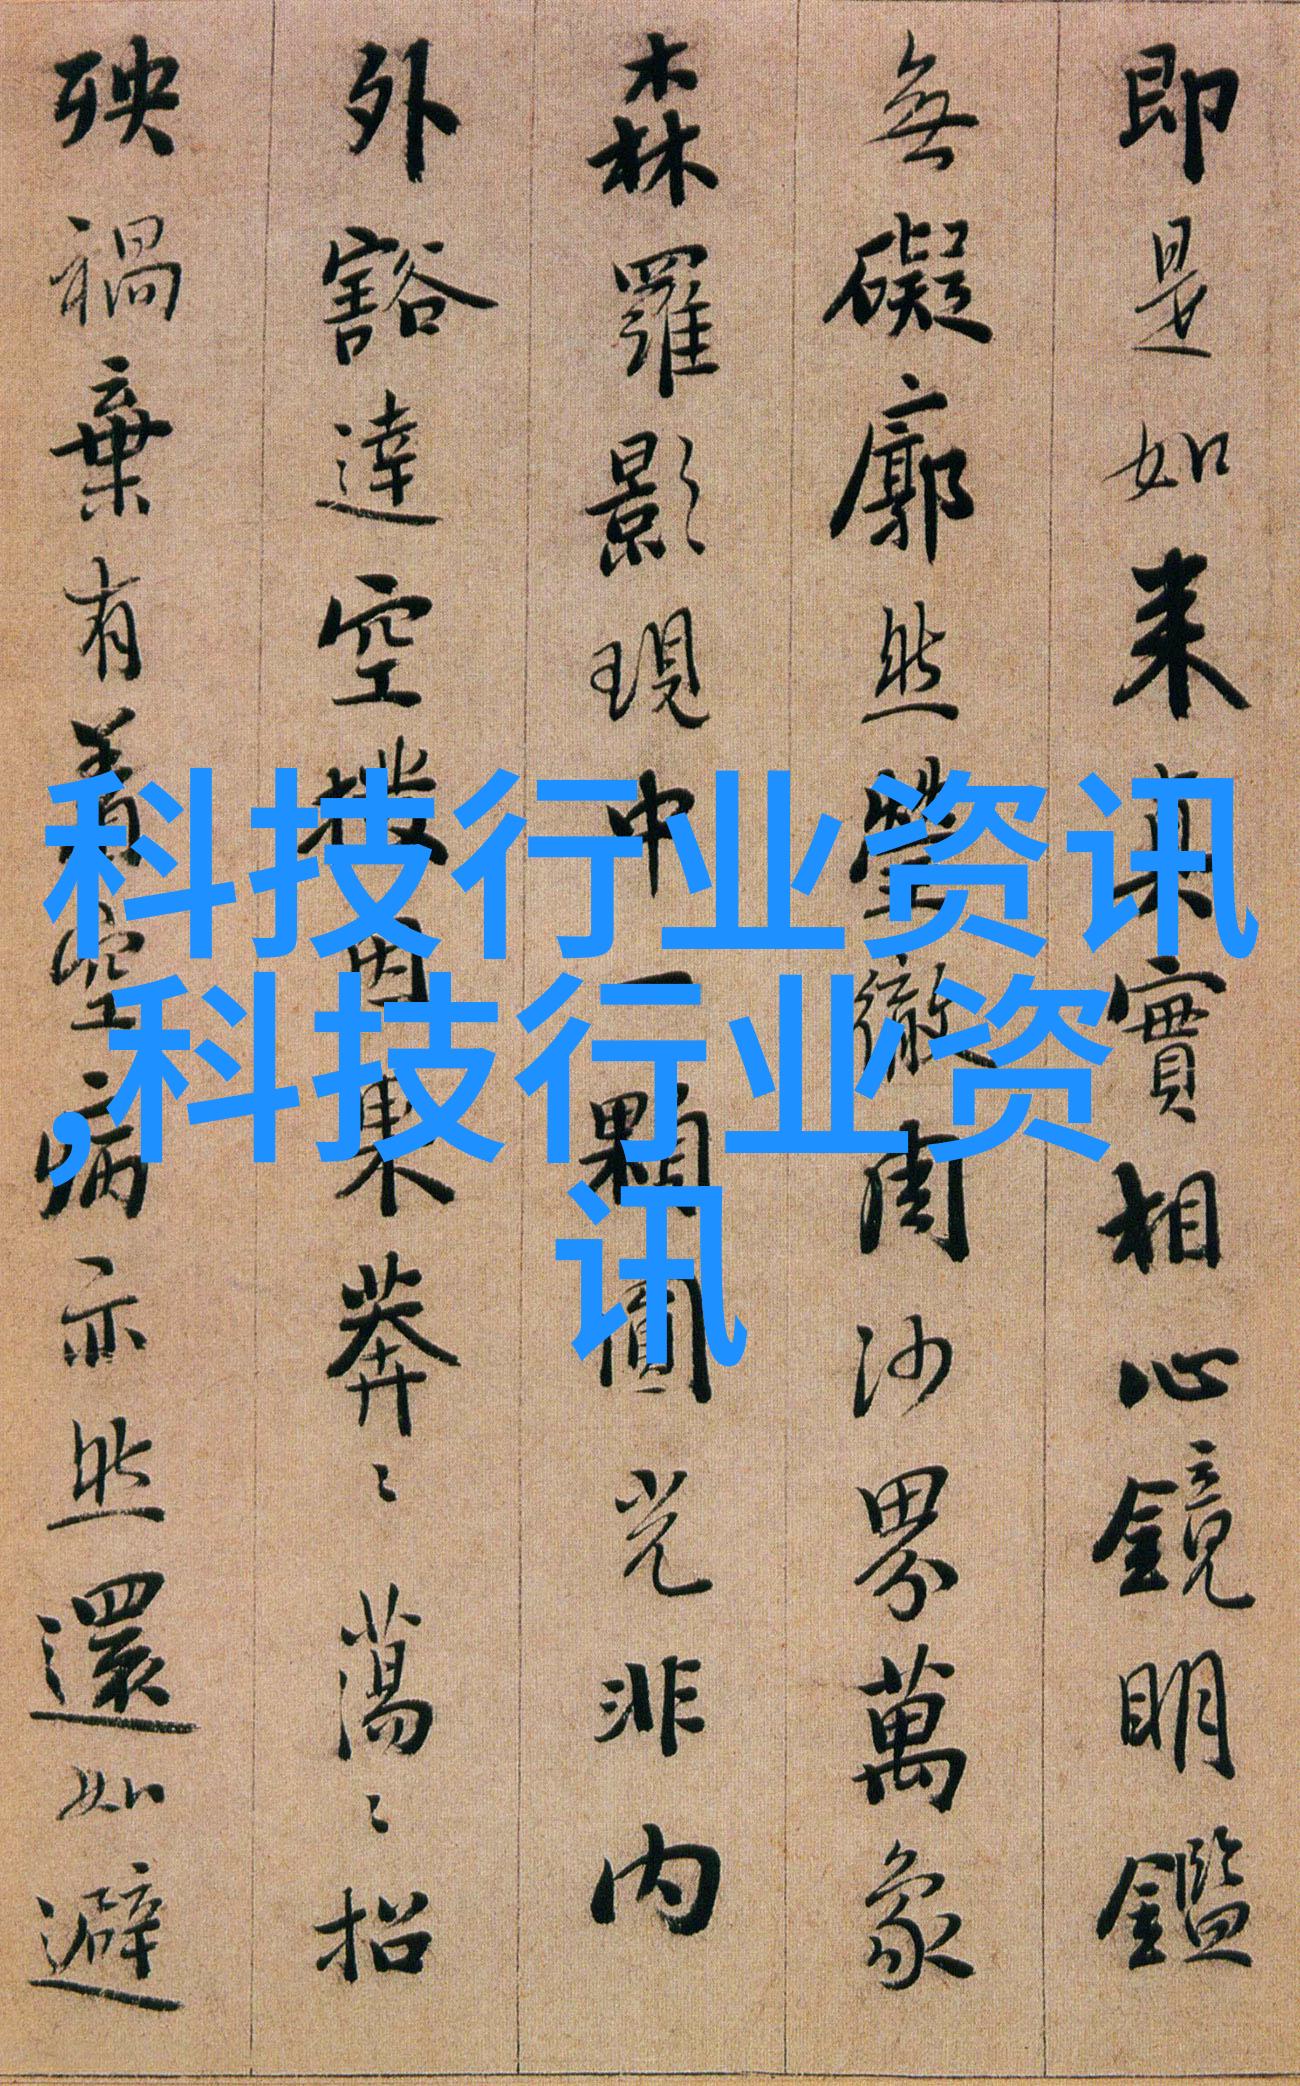 即是如来真實相心鏡明鑑
無礙廓然瑩徹周沙界萬象
森羅影現中一顆圓光非内
外豁達空撥因果莽〻蕩〻招
殃禍棄有着空病亦然還如避
科技行业资讯
,科技行业资
讯